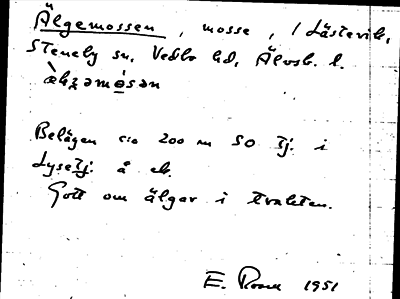 Älgemossen, mosse, i Lästervik,
Steneby sn, Vedbo hd, Älvsb. l.
Belägen c:a 200 m SO tj. i
Lysetj. å ek.
Gott om älgar i trakten.
E. Rosen 1951